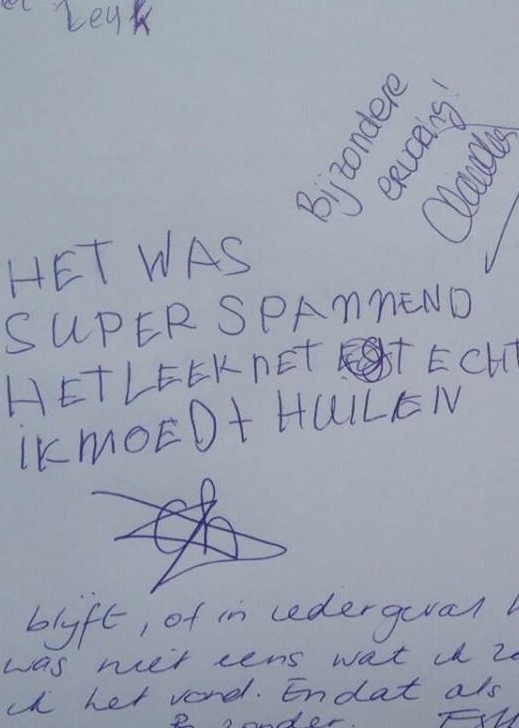 Leuk
Bijzondere
ervaring!
HET WAS
SUPER SPANNEND
HET LEEK NET ECHT
IK MOEDT HUILEN
blijft, of in ieder geval
was niet eens wat ik
ik het vond. En dat als